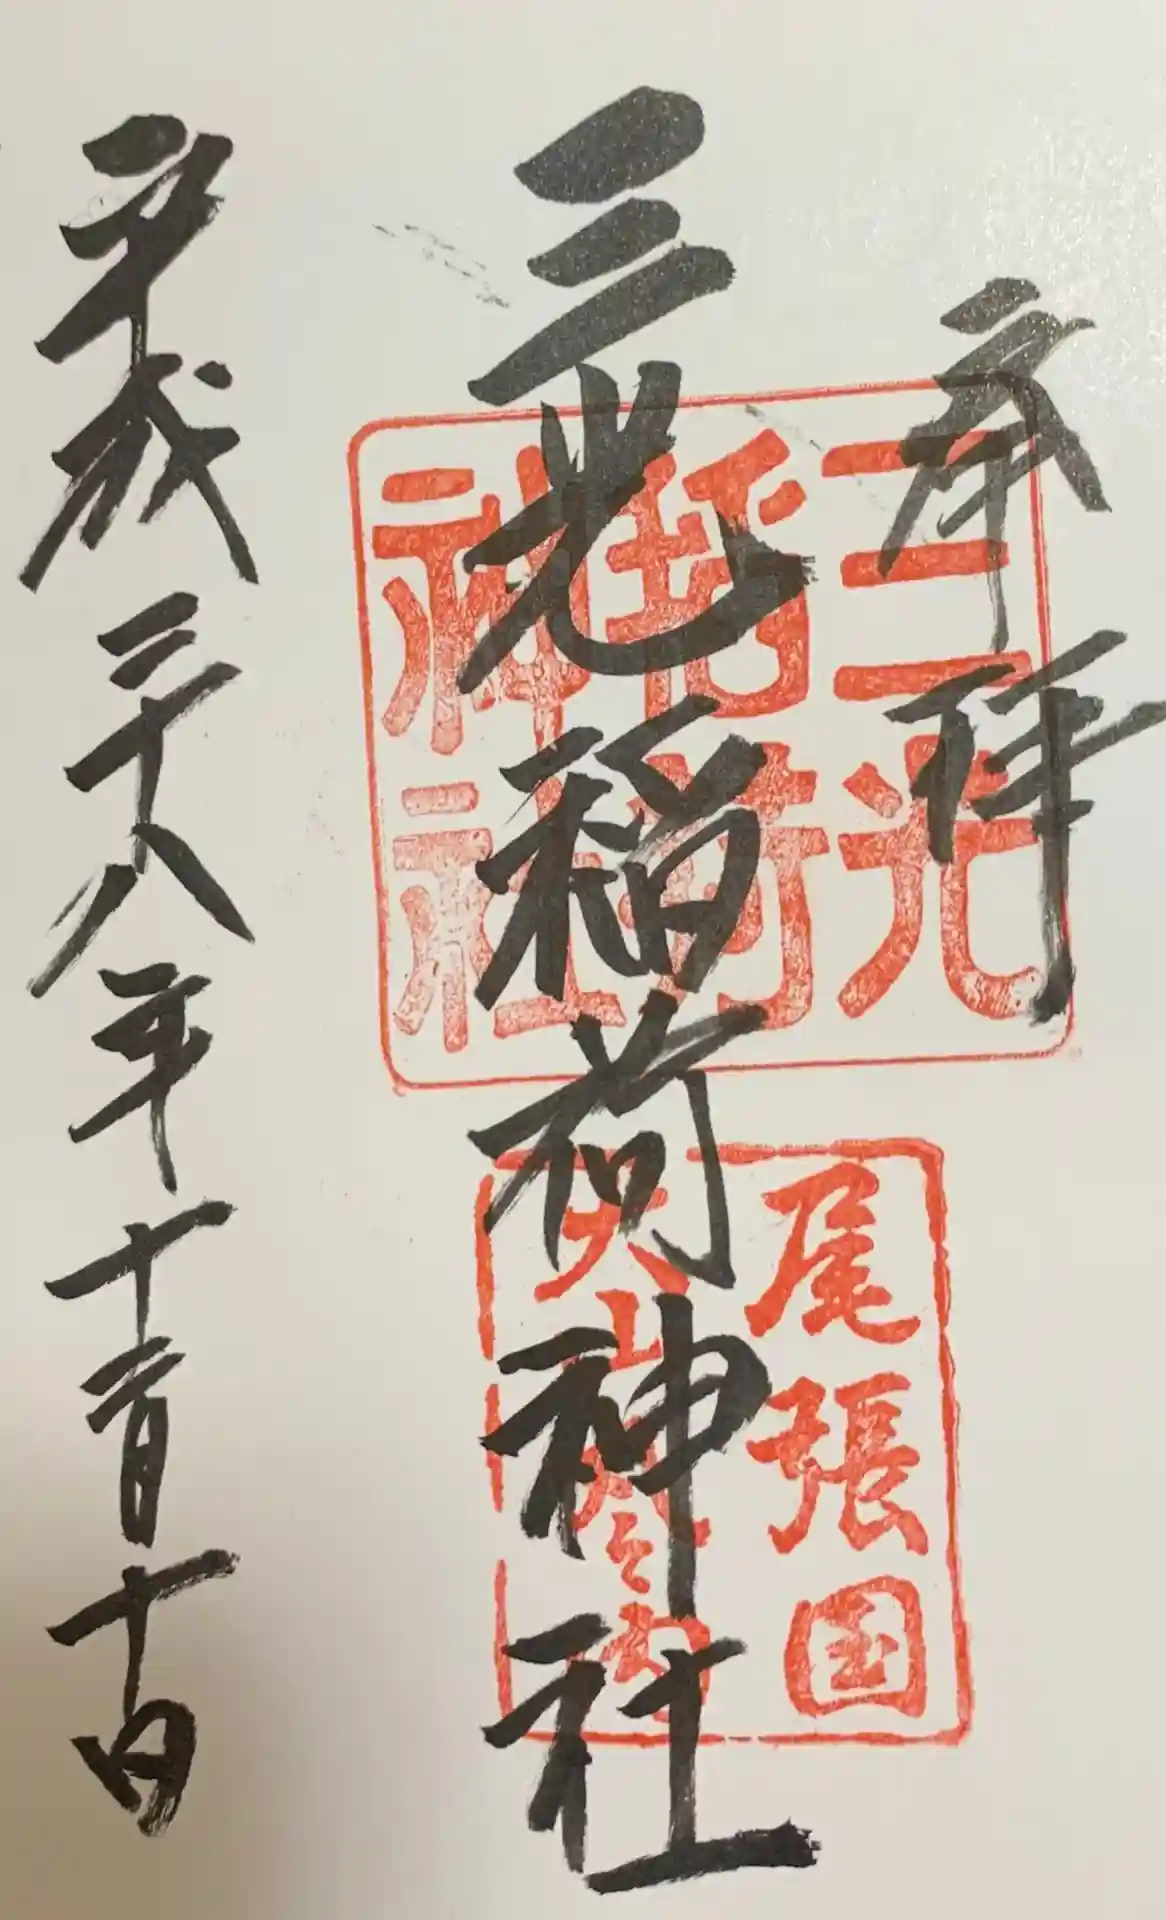 奉拝
三光稲荷神社
平成二十八年十一月十日
三光
稲荷
神社
尾張国
犬山城之内